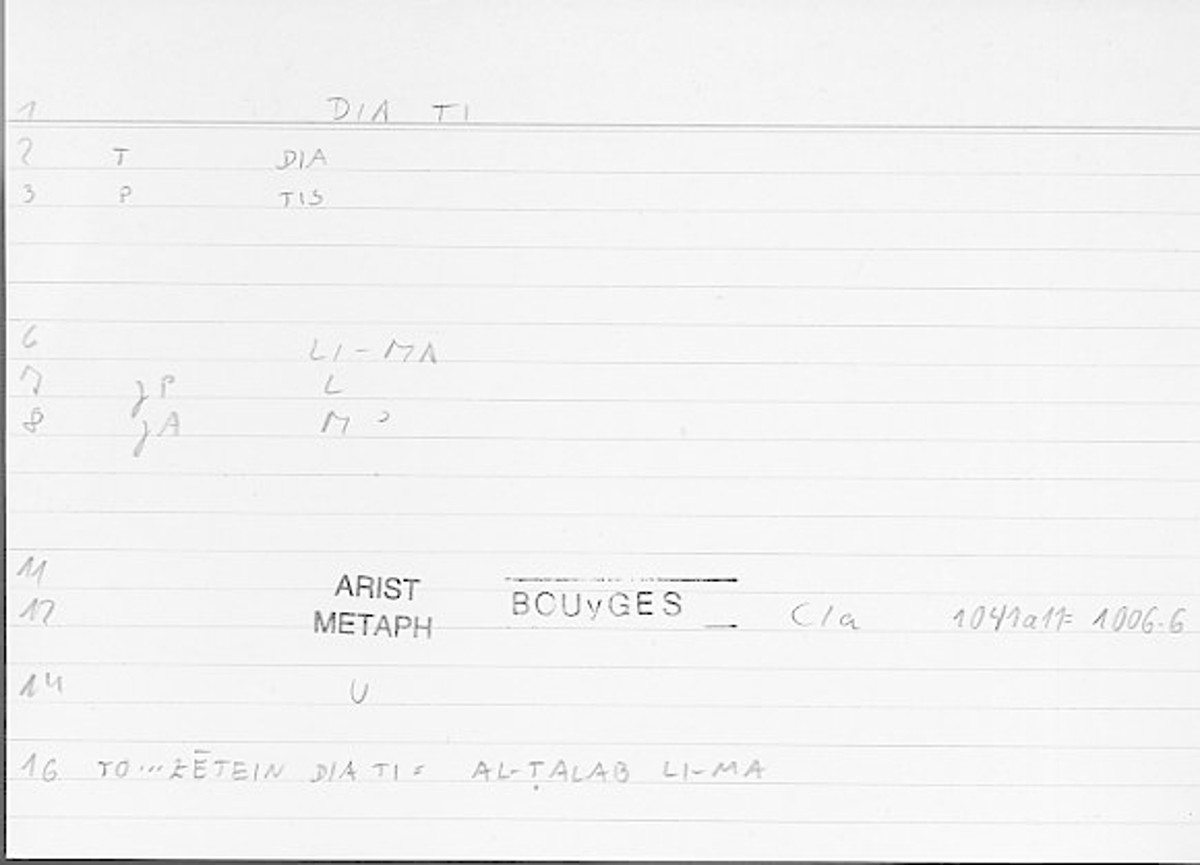 1 DIA TI
2 T DIA
3 P TIS
6 LI-MA
7 JP L
8 JA M ʾ
11 ARIST
12 METAPH BOUYGES C/a 1041a11= 1006.6
14 U
16 TO...ZĒTEIN DIA TI = AL-ṬALAB LI-MA